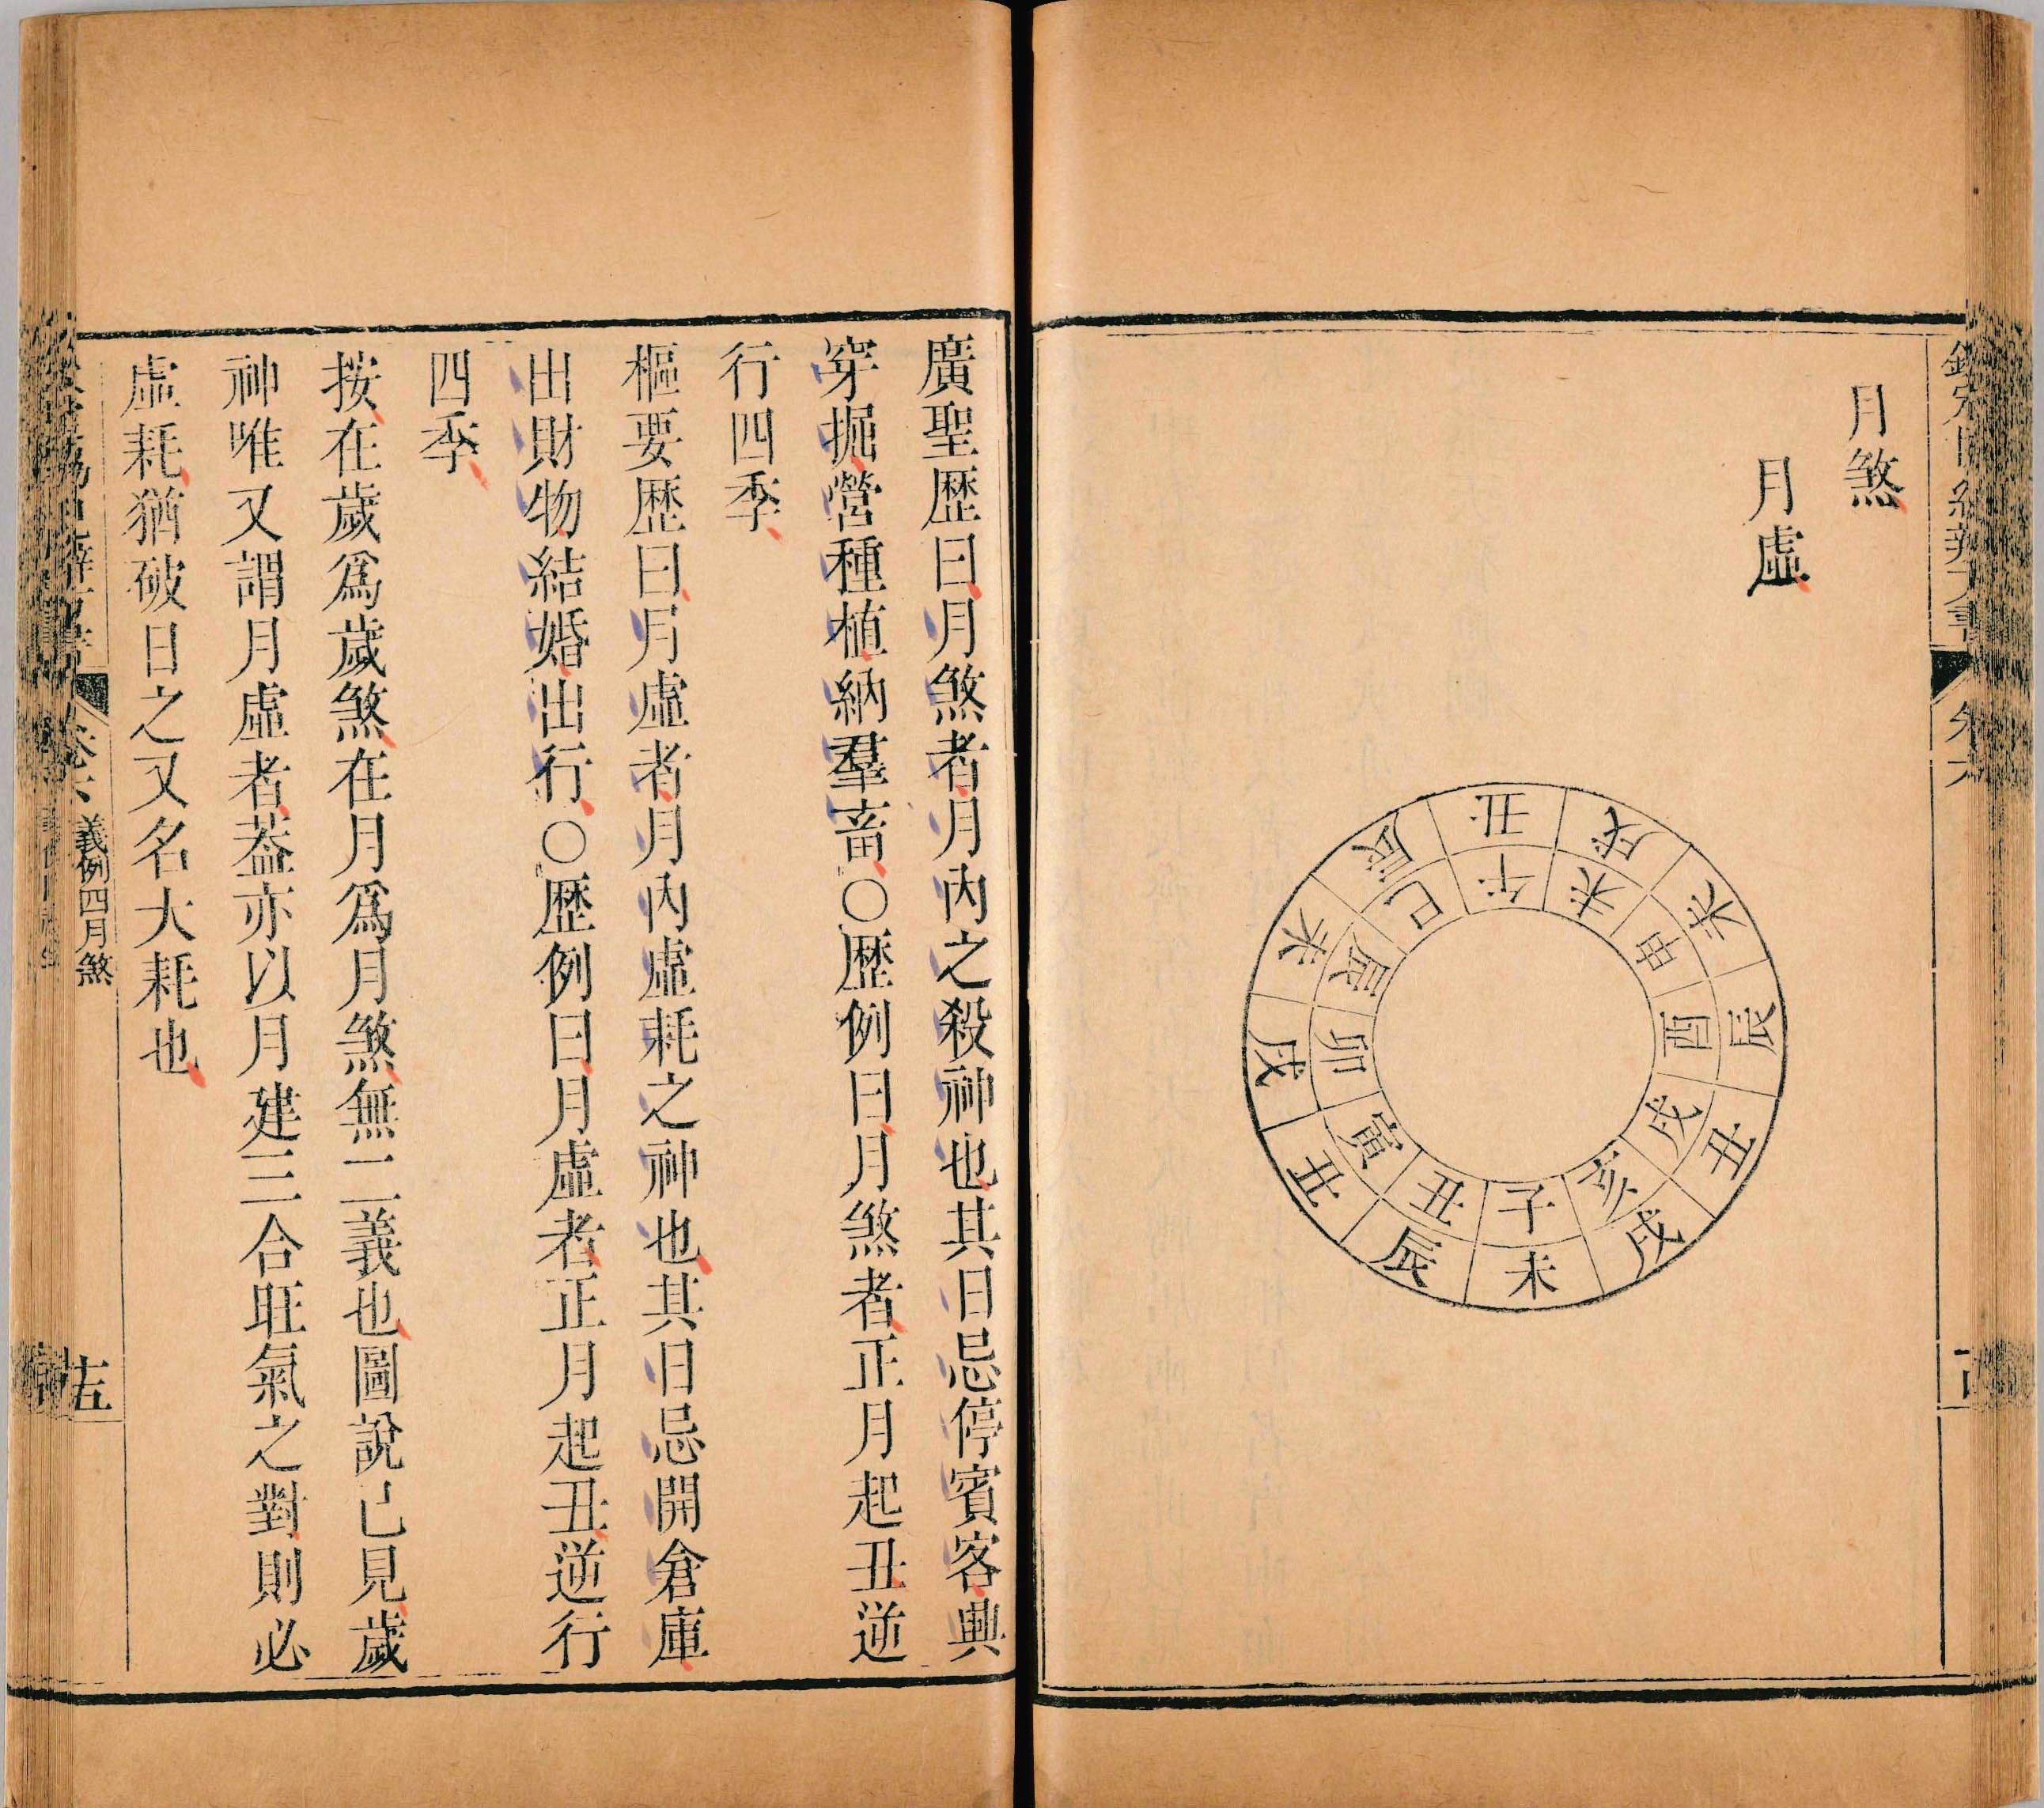 月煞
月虛
丑戌未辰丑戌未辰丑戌未辰
午未申酉戌亥子丑寅卯辰巳
廣聖歷曰月煞者月內之殺神也其日忌停賓客興
穿掘營種植納羣畜○歷例曰月煞者正月起丑逆
行四季
樞要歷曰月虛者月內虛耗之神也其日忌開倉庫
出財物結婚出行○歷例曰月虛者正月起丑逆行
四季
按在歲爲歲煞在月爲月煞無二義也圖說已見歲
神唯又謂月虛者葢亦以月建三合旺氣之對則必
虛耗猶破日之又名大耗也
卷六 義例四月煞
十五